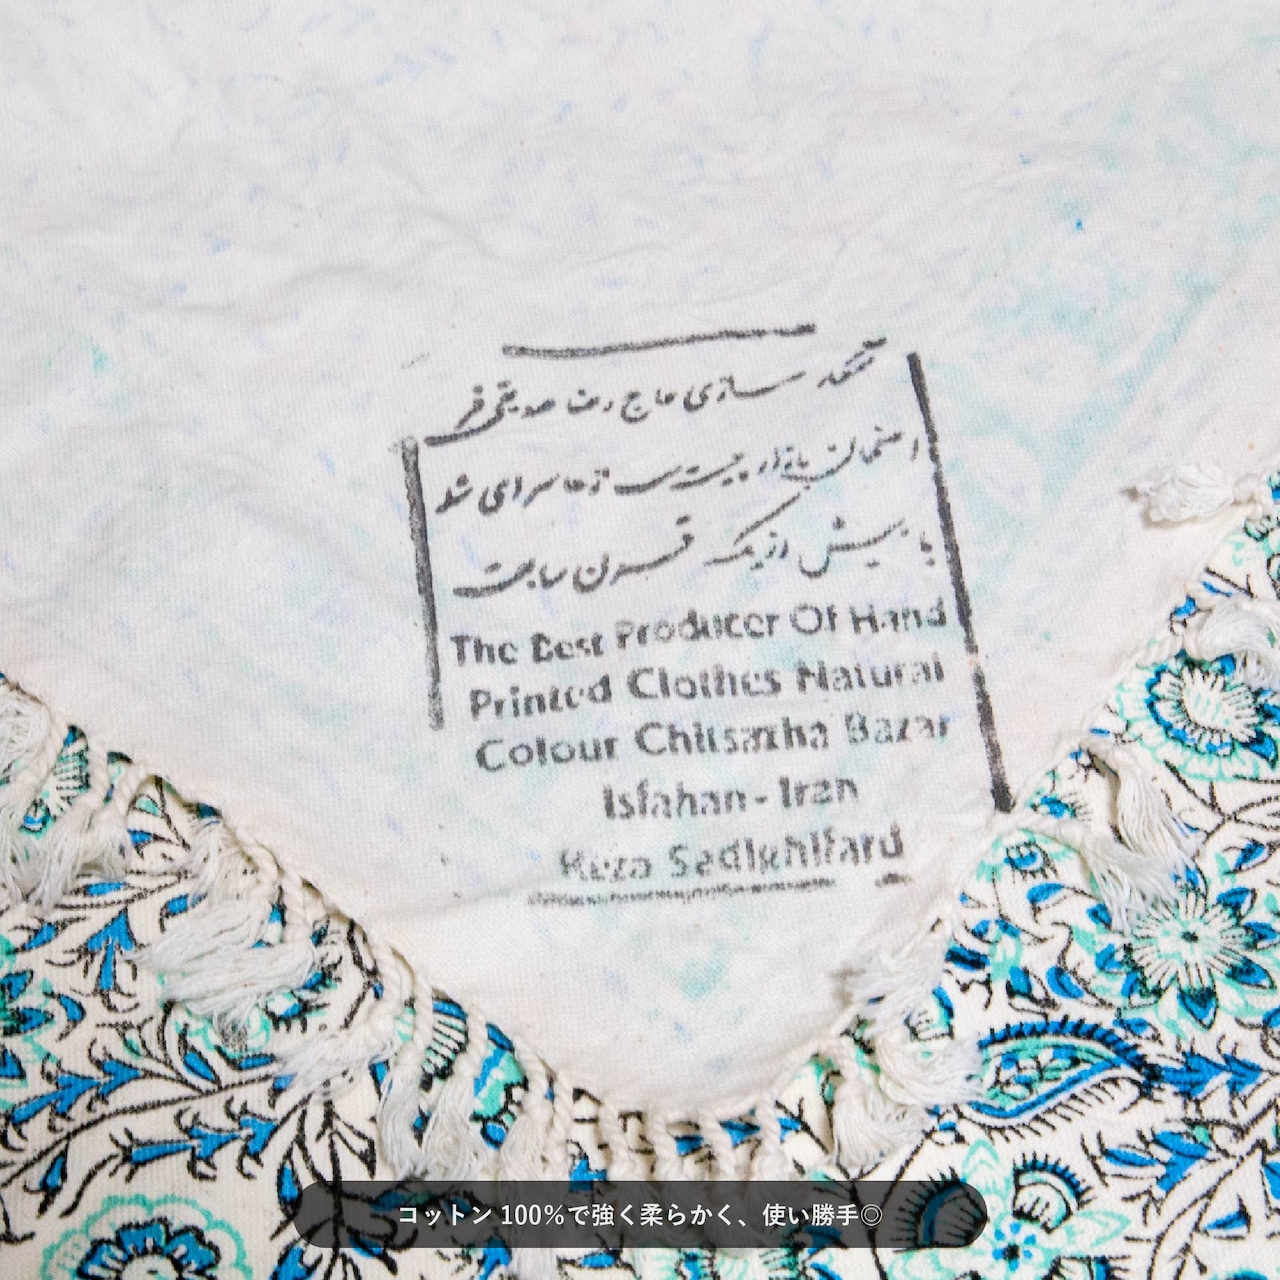 قلمکار سازی حاج رضا صدیقی فر
اصفهان بازار چیت سازها سرای شو
با بیش از یک قرن سابقه
The Best Producer Of Hand
Printed Clothes Natural
Colour Chitsazha Bazar
Isfahan - Iran
Reza Sadighifard
コットン 100%で強く柔らかく、使い勝手◎